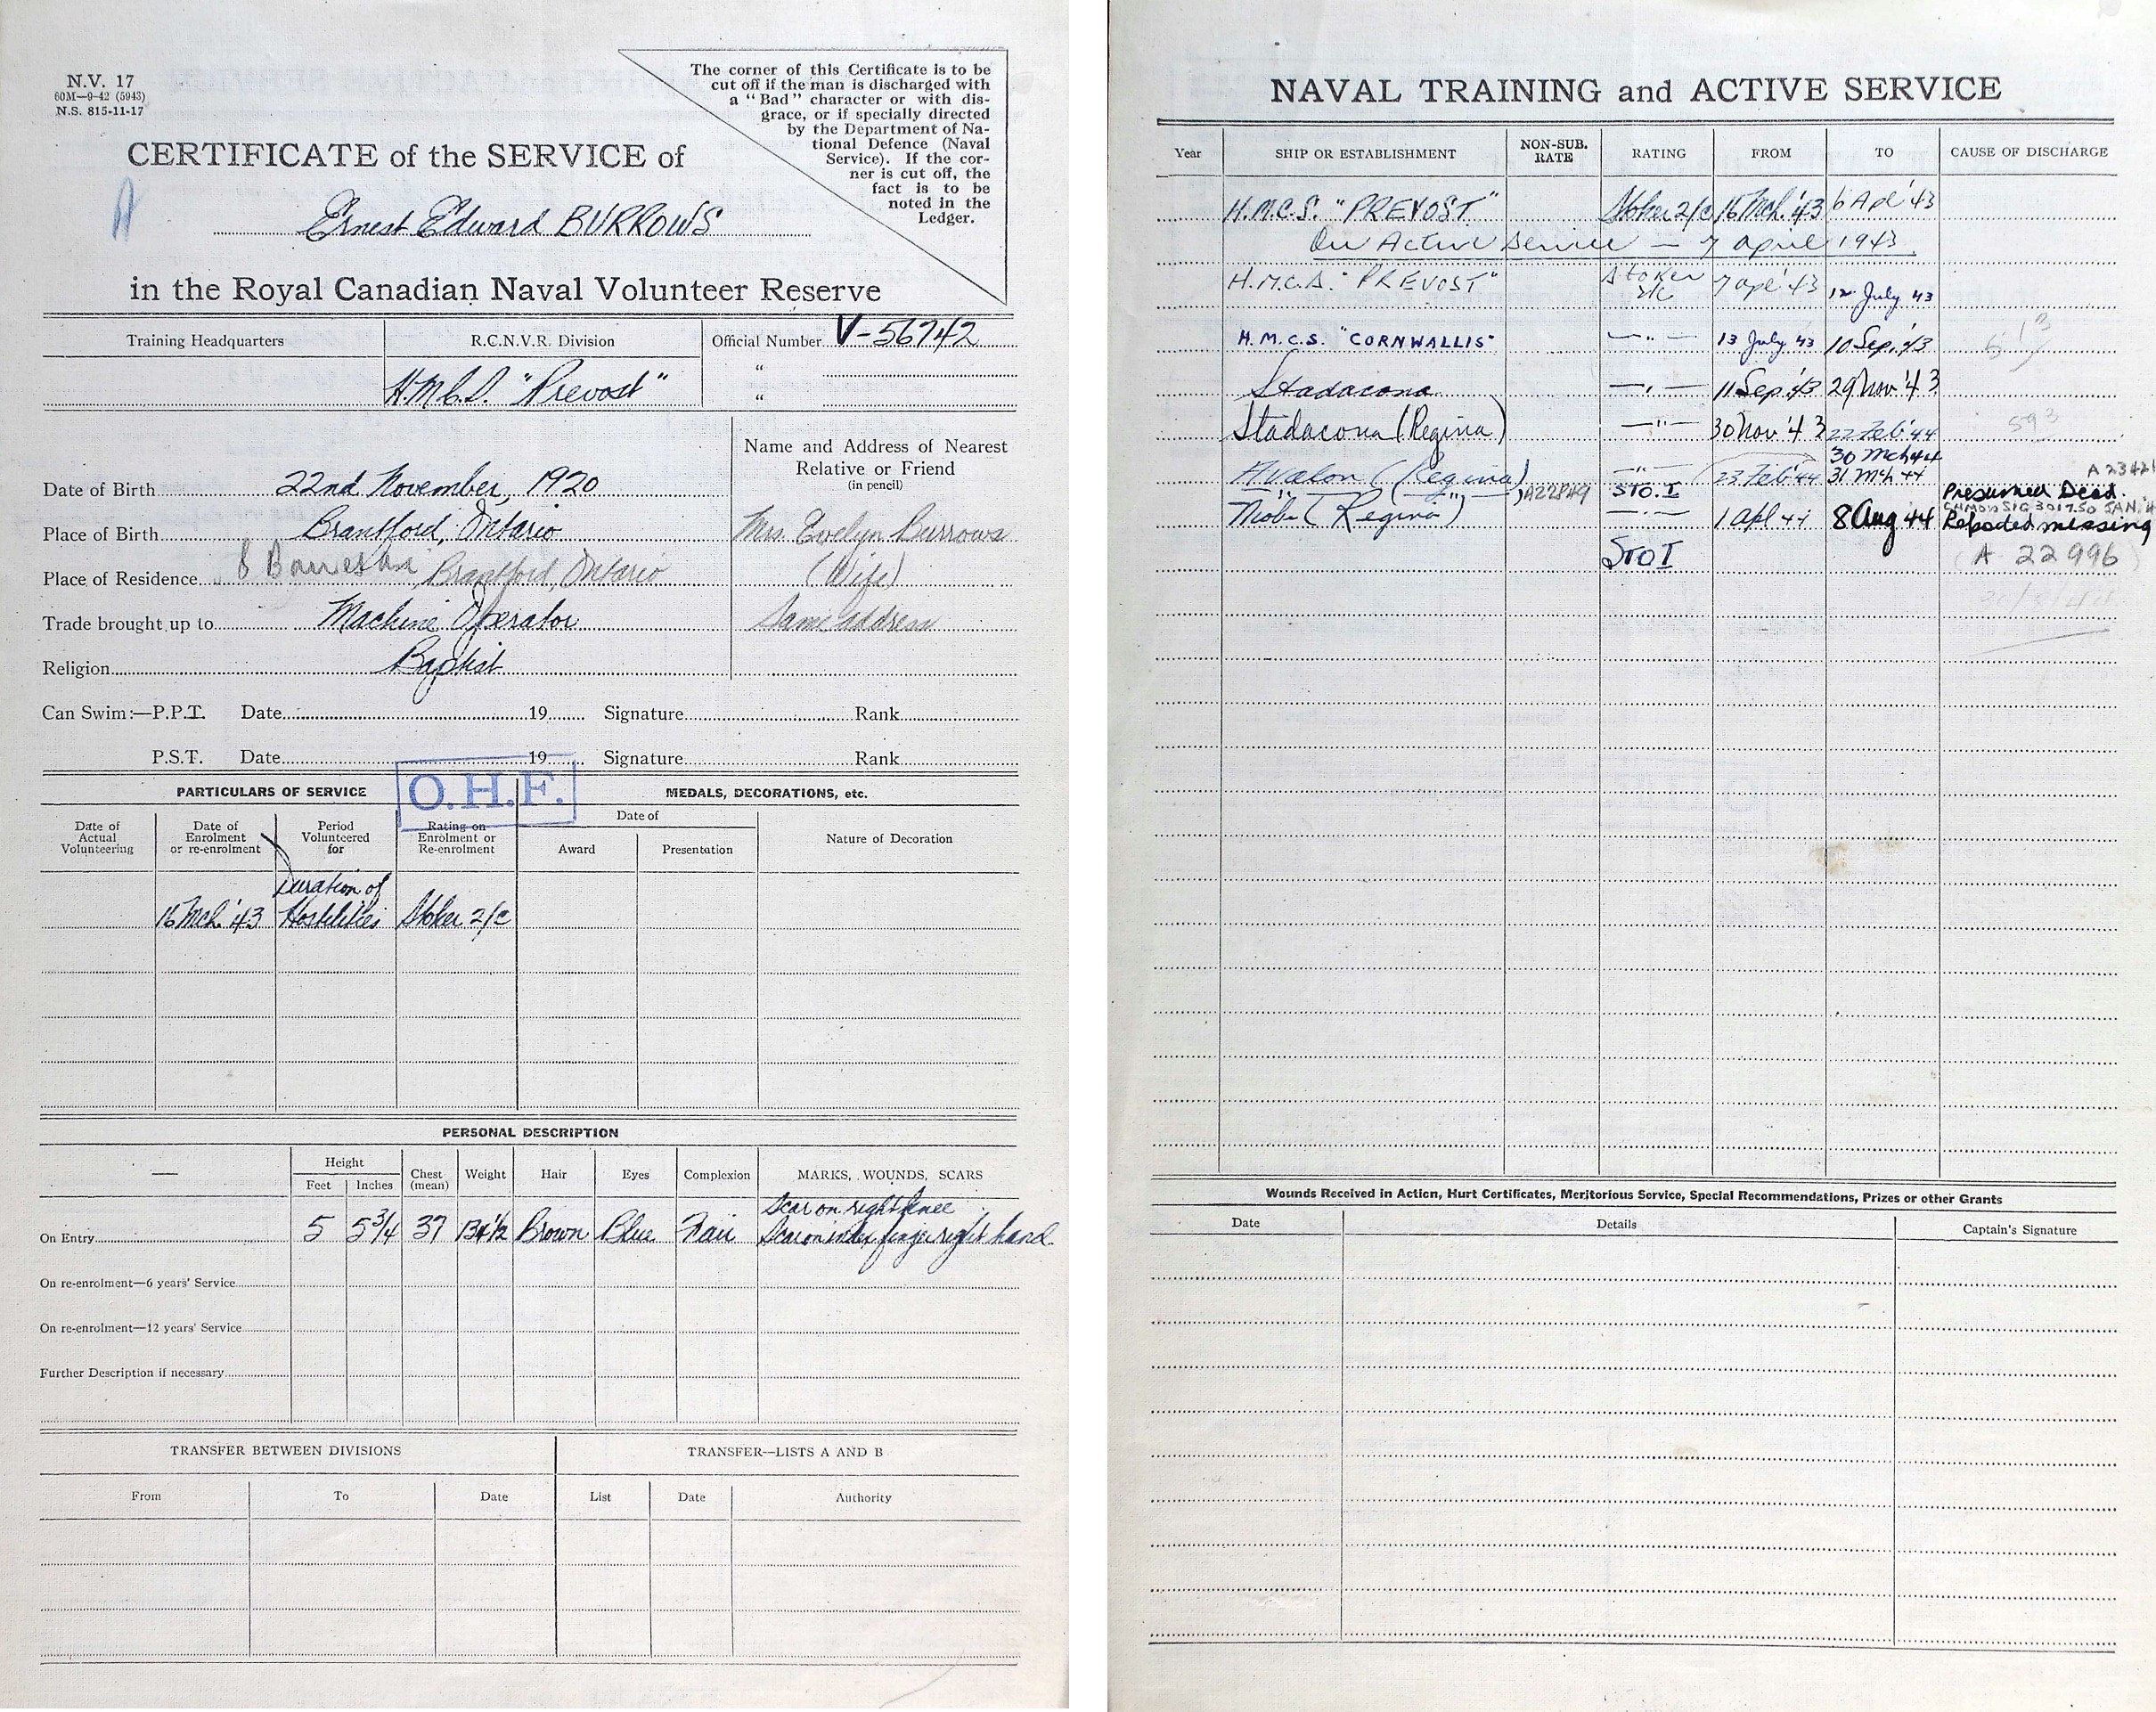 N.V. 17
60M—9-42 (5943)
N.S. 815-11-17
The corner of this Certificate is to be
cut off if the man is discharged with
a "Bad" character or with dis-
grace, or if specially directed
by the Department of Na-
tional Defence (Naval
Service). If the cor-
ner is cut off, the
fact is to be
noted in the
Ledger.
CERTIFICATE of the SERVICE of
Ernest Edward BURROWS
in the Royal Canadian Naval Volunteer Reserve
Training Headquarters R.C.N.V.R. Division Official Number V-56742
H.M.C.S. "Prevost" "
"
Name and Address of Nearest
Relative or Friend
(in pencil)
Date of Birth 22nd November, 1920
Place of Birth Brantford, Ontario Mrs. Evelyn Burrows
Place of Residence 8 Brantford, Ontario (Wife)
Trade brought up to Machine Operator Same address
Religion Baptist
Can Swim:—P.P.T. Date 19 Signature Rank
P.S.T. Date 19 Signature Rank
O.H.F.
PARTICULARS OF SERVICE MEDALS, DECORATIONS, etc.
Date of Actual Volunteering Date of Enrolment or re-enrolment Period Volunteered for Rating on Enrolment or Re-enrolment Date of Award Presentation Nature of Decoration
Duration of
16 Mch. '43 Hostilities Stoker 2/c
PERSONAL DESCRIPTION
— Height Feet Inches Chest (mean) Weight Hair Eyes Complexion MARKS, WOUNDS, SCARS
Scar on right knee
On Entry 5 5 3/4 37 134 1/2 Brown Blue Fair Scar on index finger right hand
On re-enrolment—6 years' Service
On re-enrolment—12 years' Service
Further Description if necessary
TRANSFER BETWEEN DIVISIONS TRANSFER—LISTS A AND B
From To Date List Date Authority
NAVAL TRAINING and ACTIVE SERVICE
Year SHIP OR ESTABLISHMENT NON-SUB. RATE RATING FROM TO CAUSE OF DISCHARGE
H.M.C.S. "PREVOST" Stoker 2/c 16 Mch. '43 6 Apl '43
On Active Service — 7 April 1943
H.M.C.S. "PREVOST" Stoker 2/c 7 Apl '43 12 July 43
H.M.C.S. "CORNWALLIS" — " — 13 July '43 10 Sep. '43
Stadacona — " — 11 Sep '43 29 Nov '43
Stadacona (Regina) — " — 30 Nov '43 22 Feb '44 593
30 Mch 44
Avalon (Regina) — " — 23 Feb '44 31 Mch 44
— " — ( — " — ) A22849 STO. I Presumed Dead.
Niobe (Regina) — " — 1 Apl 44 8 Aug 44 Reported missing
STO I (A 22996)
Wounds Received in Action, Hurt Certificates, Meritorious Service, Special Recommendations, Prizes or other Grants
Date Details Captain's Signature